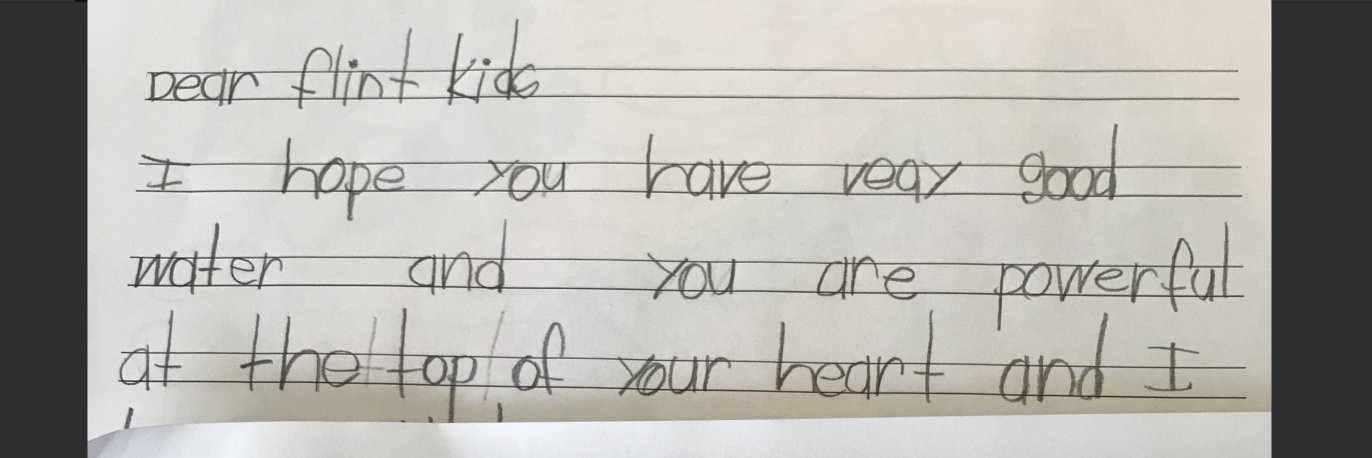 Dear flint kids
I hope you have veay good
water and you are powerful
at the top of your heart and I